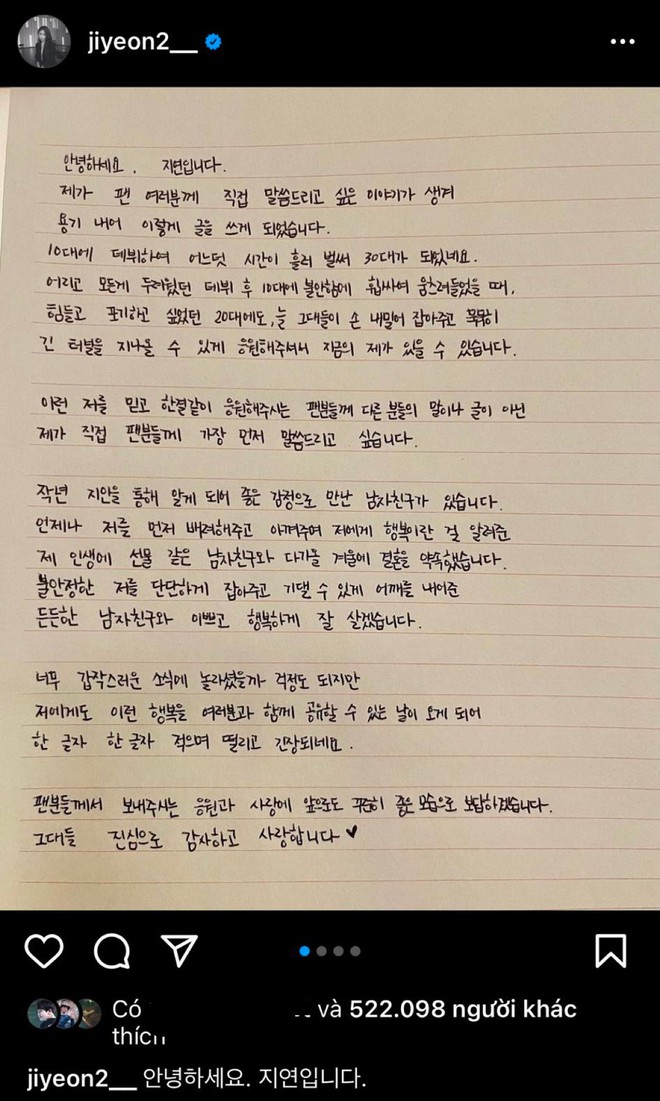 jiyeon2__
안녕하세요. 지연입니다.
제가 팬 여러분께 직접 말씀드리고 싶은 이야기가 생겨
용기 내어 이렇게 글을 쓰게 되었습니다.
10대에 데뷔하여 어느덧 시간이 흘러 벌써 30대가 되었네요.
어리고 모든게 두려웠던 데뷔 후 10대에 불안함에 휩싸여 움츠려들었을 때,
힘들고 포기하고 싶었던 20대에도, 늘 그대들이 손 내밀어 잡아주고 묵묵히
긴 터널을 지나올 수 있게 응원해주셔서 지금의 제가 있을 수 있습니다.
이런 저를 믿고 한결같이 응원해주시는 팬분들께 다른 분들의 말이나 글이 아닌
제가 직접 팬분들께 가장 먼저 말씀드리고 싶습니다.
작년 지안을 통해 알게 되어 좋은 감정으로 만난 남자친구가 있습니다.
언제나 저를 먼저 배려해주고 아껴주며 저에게 행복이란 걸 알려준
제 인생에 선물 같은 남자친구와 다가올 겨울에 결혼을 약속했습니다.
불안정한 저를 단단하게 잡아주고 기댈 수 있게 어깨를 내어준
든든한 남자친구와 이쁘고 행복하게 잘 살겠습니다.
너무 갑작스러운 소식에 놀라셨을까 걱정도 되지만
저에게도 이런 행복을 여러분과 함께 공유할 수 있는 날이 오게 되어
한 글자 한 글자 적으며 떨리고 긴장되네요.
팬분들께서 보내주시는 응원과 사랑에 앞으로도 꾸준히 좋은 모습으로 보답하겠습니다.
그대들 진심으로 감사하고 사랑합니다 ♥
Có và 522.098 người khác
thích
jiyeon2__ 안녕하세요. 지연입니다.